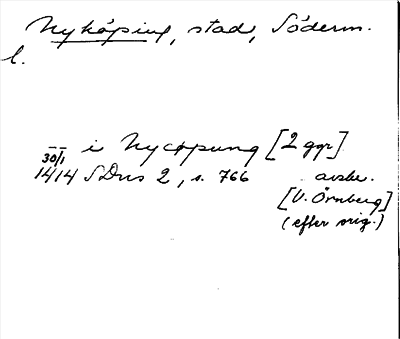 Nyköping, stad, Söderm.
l.
i Nycøpung [2 ggr]
30/1
1414 SDns 2, s. 766 avskr.
[V. Örnberg]
(efter orig.)